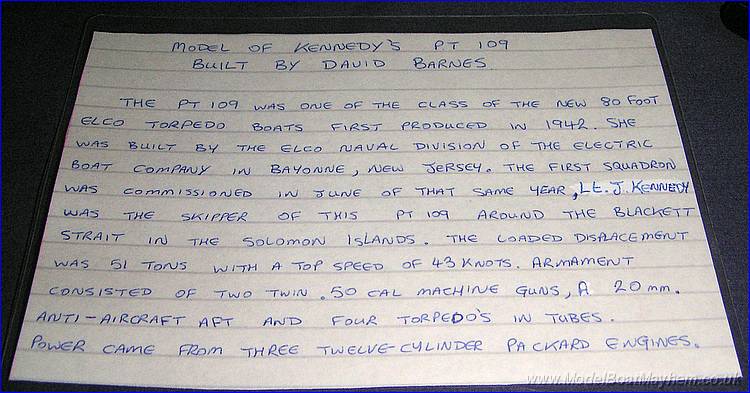 MODEL OF KENNEDY'S PT 109
BUILT BY DAVID BARNES
THE PT 109 WAS ONE OF THE CLASS OF THE NEW 80 FOOT
ELCO TORPEDO BOATS FIRST PRODUCED IN 1942. SHE
WAS BUILT BY THE ELCO NAVAL DIVISION OF THE ELECTRIC
BOAT COMPANY IN BAYONNE, NEW JERSEY. THE FIRST SQUADRON
WAS COMMISSIONED IN JUNE OF THAT SAME YEAR, Lt. J. KENNEDY
WAS THE SKIPPER OF THIS PT 109 AROUND THE BLACKETT
STRAIT IN THE SOLOMON ISLANDS. THE LOADED DISPLACEMENT
WAS 51 TONS WITH A TOP SPEED OF 43 KNOTS. ARMAMENT
CONSISTED OF TWO TWIN .50 CAL MACHINE GUNS, A 20 mm.
ANTI-AIRCRAFT AFT AND FOUR TORPEDO'S IN TUBES.
POWER CAME FROM THREE TWELVE-CYLINDER PACKARD ENGINES.
www.ModelBoatMayhem.co.uk